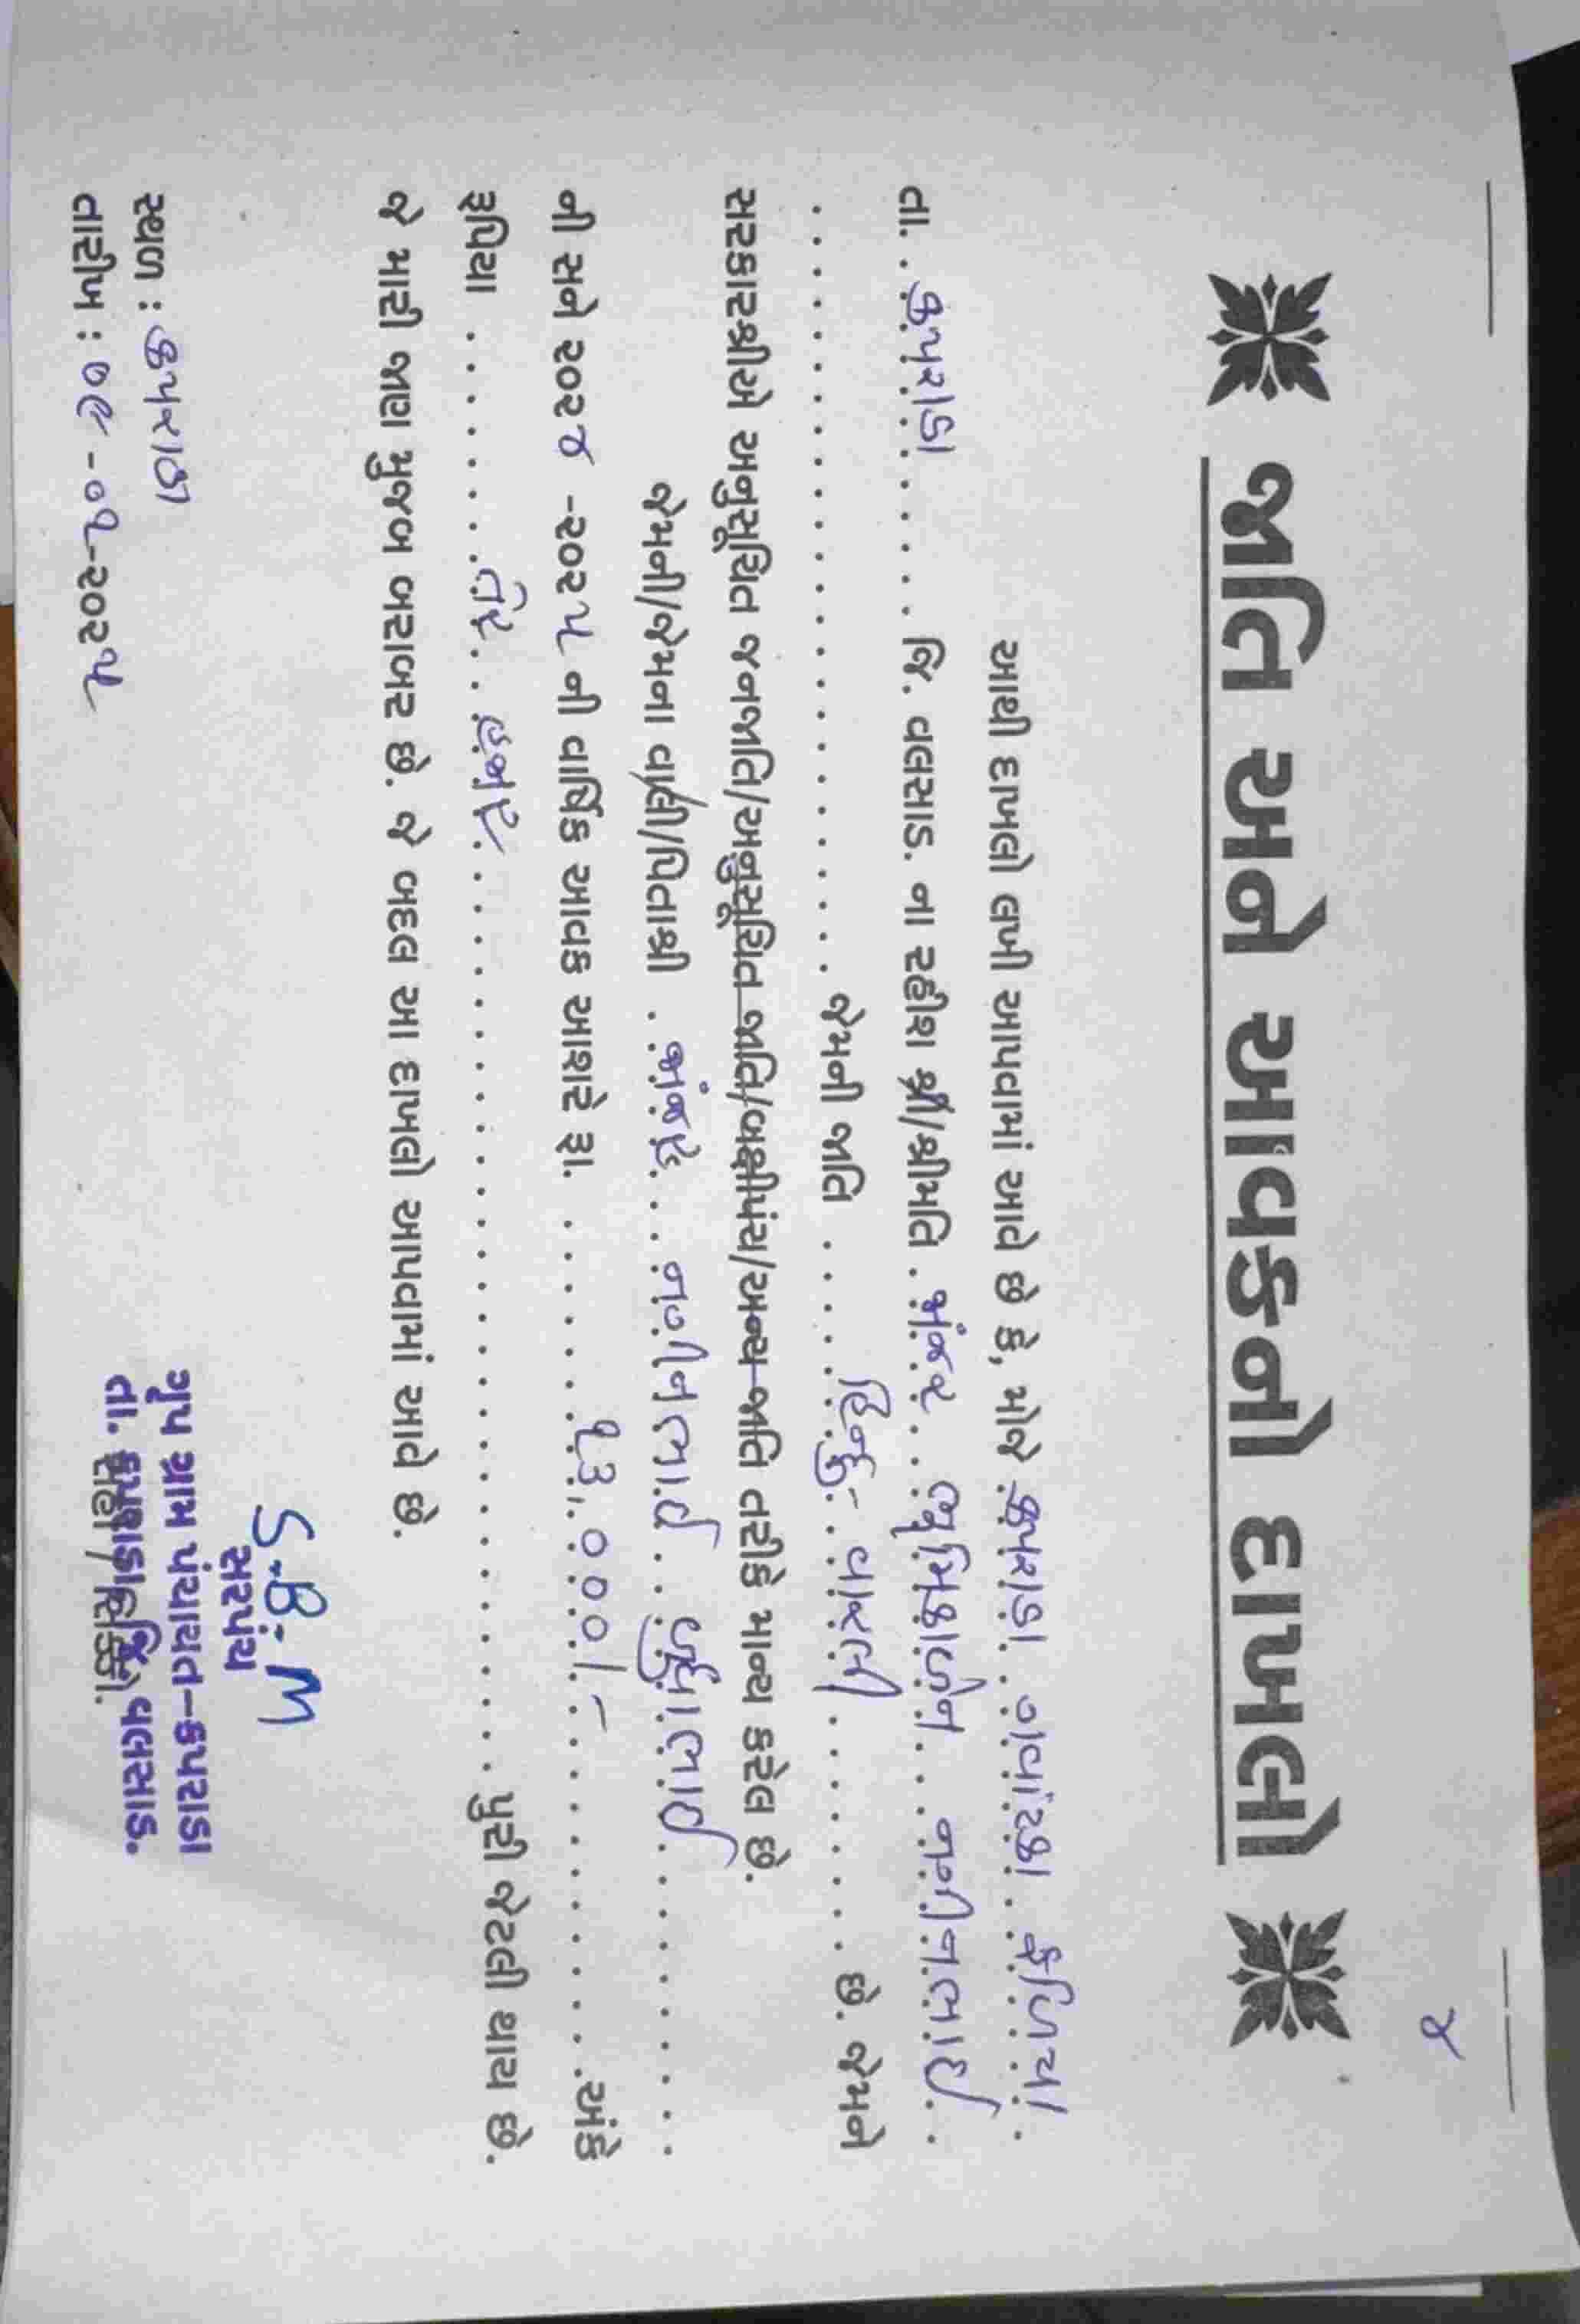 ૪
જાતિ અને આવકનો દાખલો
આથી દાખલો લખી આપવામાં આવે છે કે, મોજે કપરાડા નવાંરકા ફળિયા
તા. કપરાડા જિ. વલસાડ. ના રહીશ શ્રી/શ્રીમતિ ભૂમિકાબેન નગીનભાઈ
જેમની જાતિ હિન્દુ- વારલી છે. જેમને
સરકારશ્રીએ અનુસૂચિત જનજાતિ/અનુસૂચિત જાતિ/બક્ષીપંચ/અન્ય જાતિ તરીકે માન્ય કરેલ છે.
જેમની/જેમના વાલી/પિતાશ્રી નગીનભાઈ
ની સને ૨૦૨૪ -૨૦૨૫ ની વાર્ષિક આવક આશરે રૂા. ૨૩,૦૦૦/- અંકે
રૂપિયા હજાર પુરી જેટલી થાય છે.
જે મારી જાણ મુજબ બરાબર છે. જે બદલ આ દાખલો આપવામાં આવે છે.
S.B.M
સરપંચ
સ્થળ : કપરાડા
ગ્રુપ ગ્રામ પંચાયત-કપરાડા
તારીખ : ૦૯-૦૨-૨૦૨૫
તા. કપરાડા, જિ. વલસાડ.
સહી / સિક્કો.